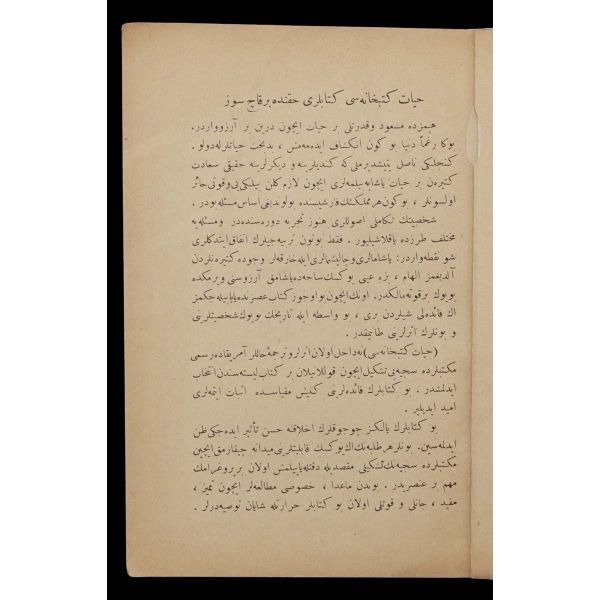 حیات کتبخانه‌سی کتابلری حقنده برقاچ سوز
هپمزده مسعود وقدرتلی بر حیات ایچون درین بر آرزوواردر.
بوکا رغماً دنیا بو کون انکشاف ایده‌مه‌مش ، بدبخت حیاتلرله‌دولو.
کنجلکی ناصل یتیشدیرملی‌که کندیلرینه و دیکرلرینه حقیقی سعادت
کتیره‌ن بر حیات یاشایه‌بیلمه‌لری ایچون لازم‌کلن بیلکی‌یی‌وقوتی‌حائز
اولسونلر ، بوکون‌هرمملکتک‌قارشیسنده بولوندیغی‌اساس‌مسئله‌بودر.
شخصیتك تکاملی اصوللری هنوز تجربه دوره‌سنده‌در ومسئله‌یه
مختلف طرزده یاقلاشیلیور . فقط بوتون تربیه‌جیلرك اتفاق ایتدکلری
شو نقطه‌واردر: یاشامالری‌وچالیشمالری‌ایله‌خارقه‌لر وجوده‌کتیره‌نلردن
آلدیغمز الهام ، بزه عینی یوکسك ساحه‌ده‌یاشامق آرزوسنی‌ویرمکده
بویوك برقوته‌مالکدر. اونك ایچون‌بواوجوز کتاب‌عصرنده‌یاپابیله‌جکمز
اك فائده‌لی شیلردن بری ، بو واسطه ایله تاریخك بویوك شخصیتلرینی
و بونلرك اثرلرینی طانیمقدر.
(حیات کتبخانه‌سی)نه‌داخل‌اولان‌اثرلروترجمهٔ‌حاللر آمریقاده‌رسمی
مکتبلرده سجیه‌یی‌تشکیل‌ایچون قوللانیلان بر کتاب‌لیسته‌سندن‌انتخاب
ایدلمشدر . بو کتابلرك فائده‌لرینی کنیش مقیاسده اثبات ایتمه‌لری
امید ایدیلیر .
بو کتابلرك یالکز چوجوقلرك اخلاقنه حسن تأثیر ایده‌جکی‌ظن
ایدلمه‌سین. بونلرهرطلبه‌نك‌اك‌یوکسك قابلیتلرینی‌میدانه چیقارمق‌ایچین
مکتبلرده سجیه‌نك‌تشکیلی مقصدیله دقتله‌یاپیلمش اولان برپروغرامك
مهم بر عنصریدر . بوندن ماعدا ، خصوصی مطالعه‌لر ایچون تمیز ،
مفید ، جانلی و قوتلی اولان بو کتابلر حرارتله شایان توصیه‌درلر .